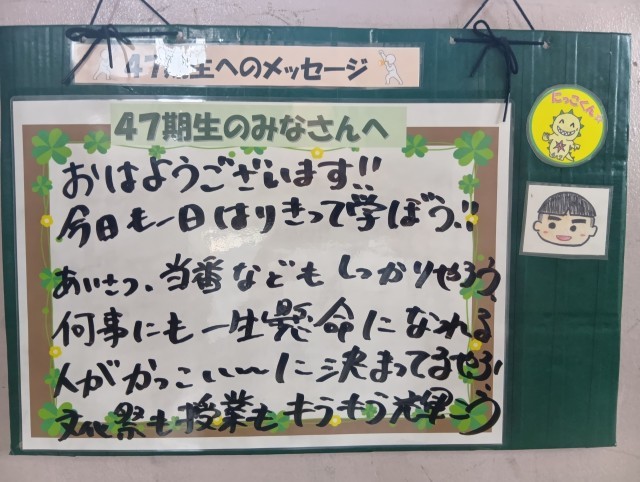 47期生へのメッセージ
47期生のみなさんへ
にっこくん
おはようございます!!
今日も一日はりきって学ぼう!!
あいさつ、当番などもしっかりやろう、
何事にも一生懸命になれる
人がかっこいい〜に決まってるやろ
文化祭も授業ももうもう